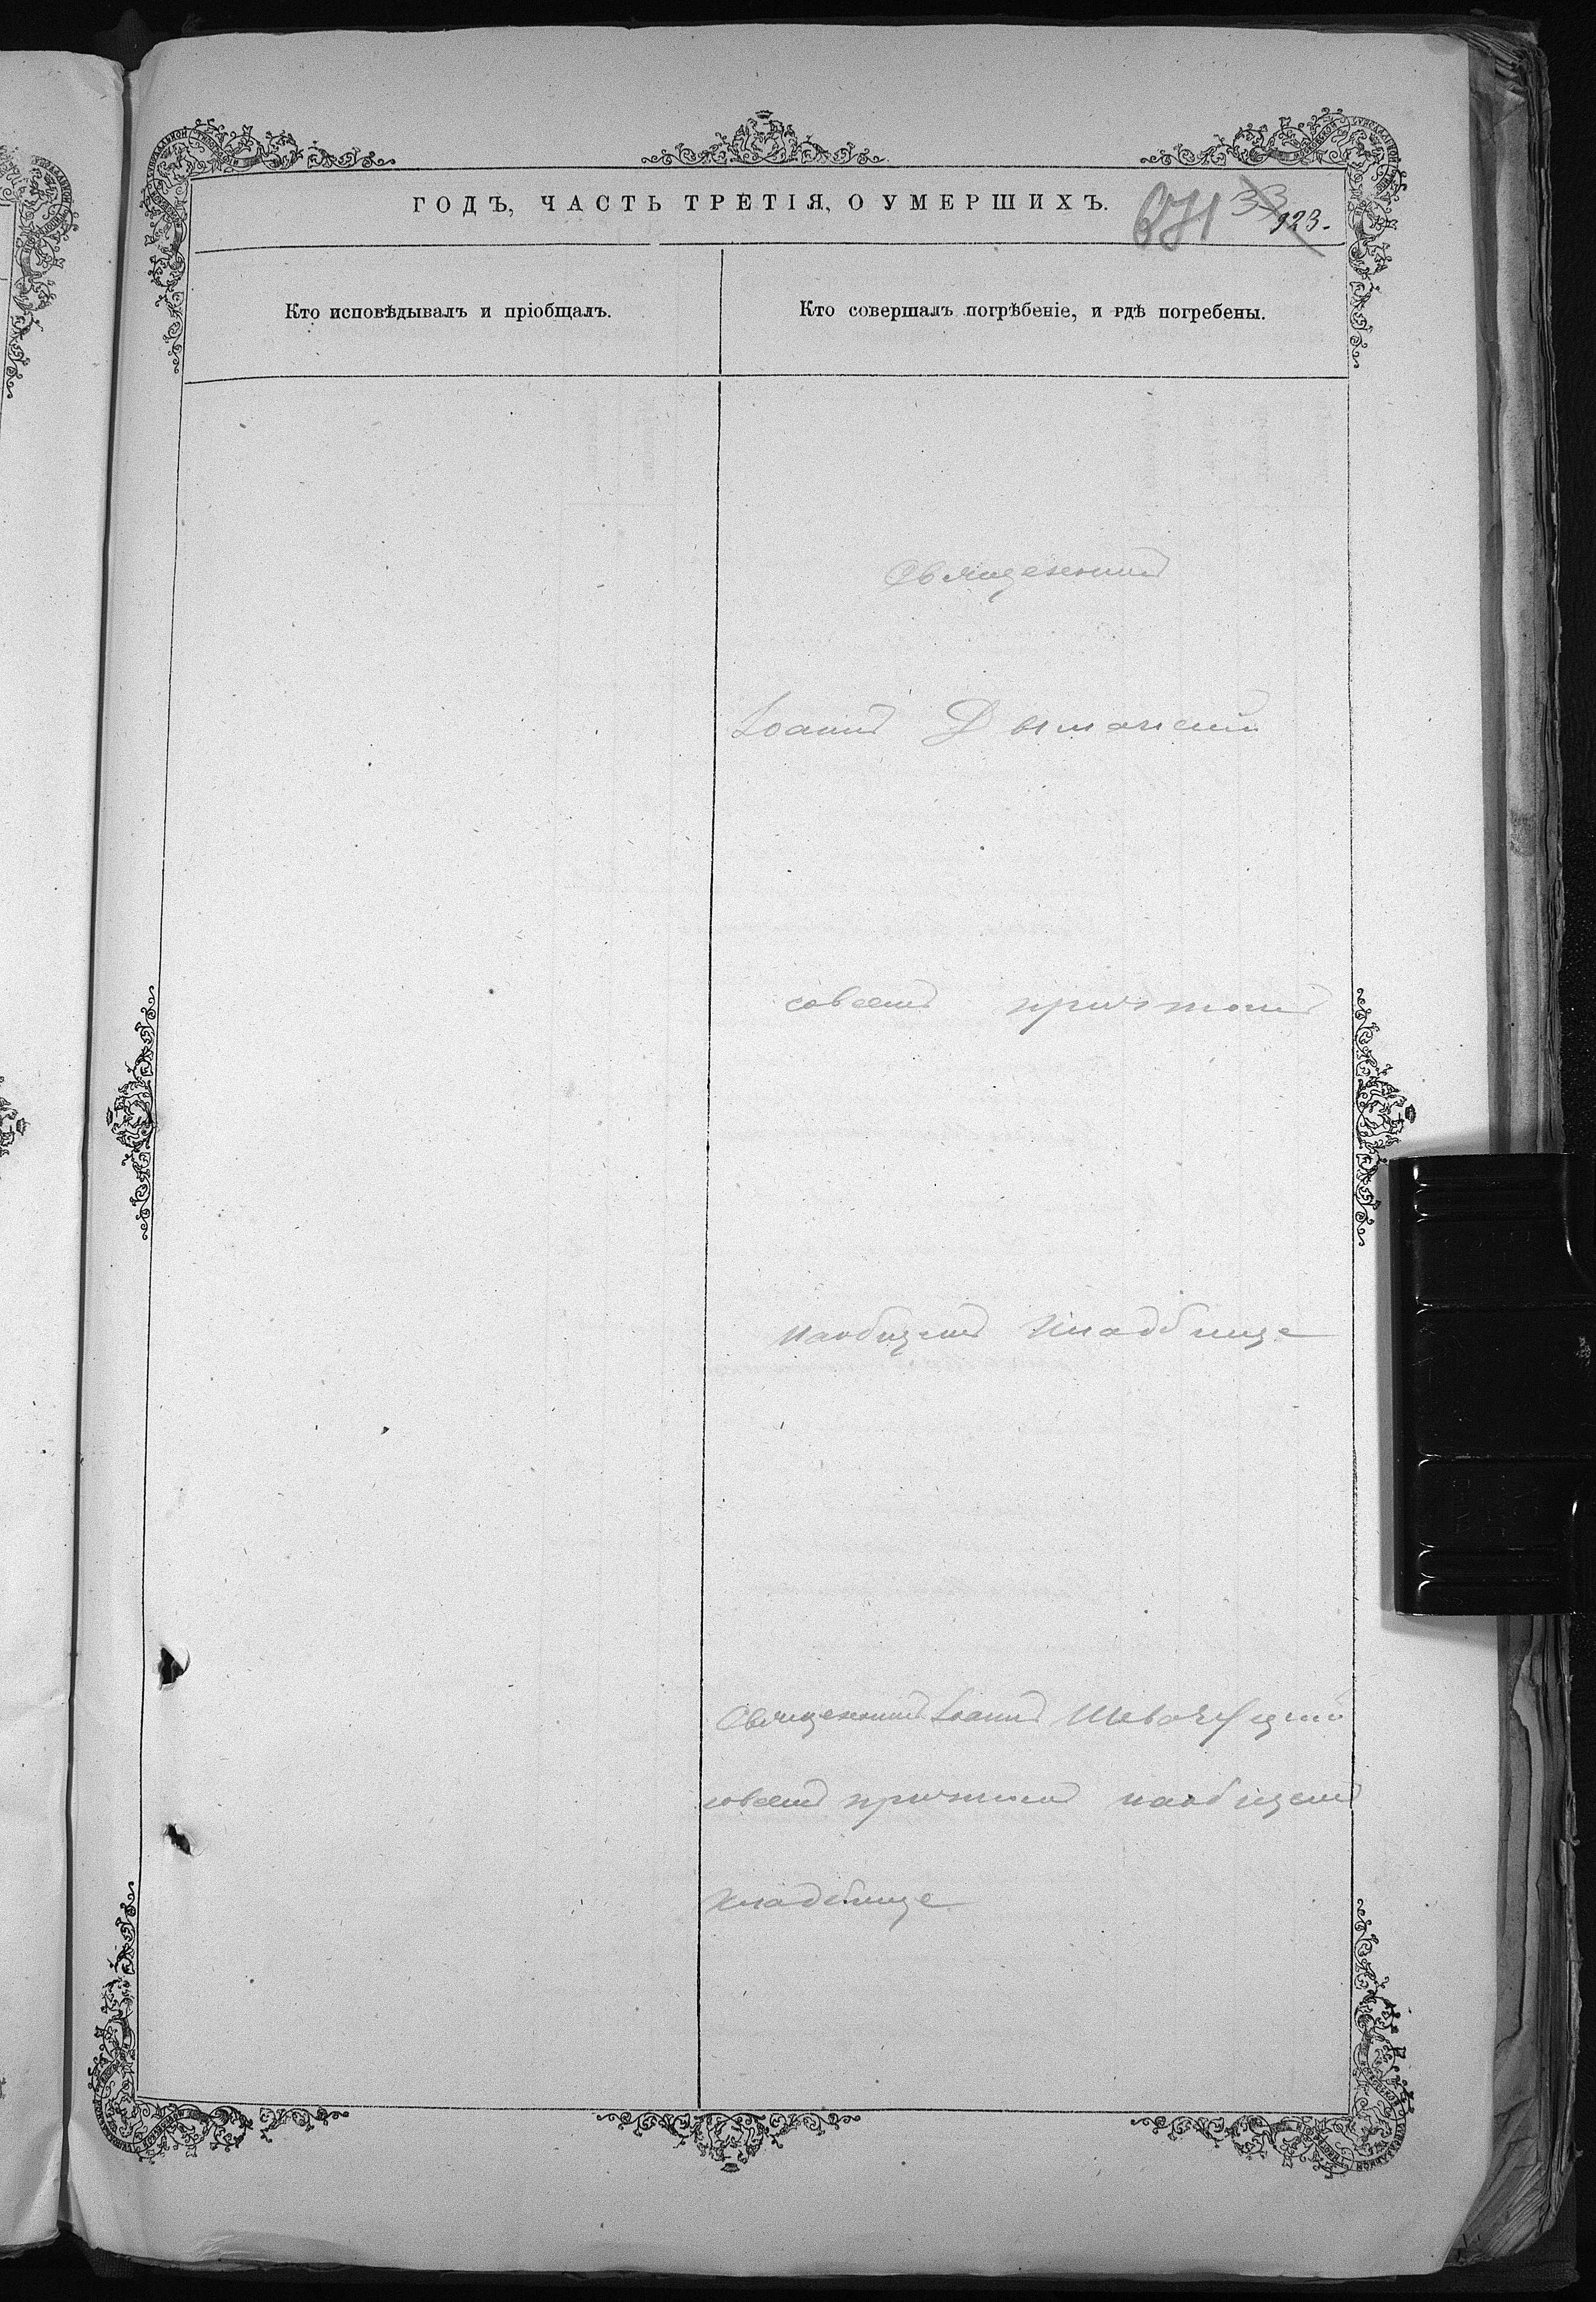 ГОДЪ, ЧАСТЬ ТРЕТІЯ, О УМЕРШИХЪ.
671 33 923.
Кто исповѣдывалъ и пріобщалъ.
Кто совершалъ погрѣбеніе, и гдѣ погребены.
Священникъ
Іоаннъ Дыманскій
совсемъ причтомъ
наобщемъ кладбище
Священникъ Іоаннъ
совсемъ причтомъ наобщемъ
кладбище